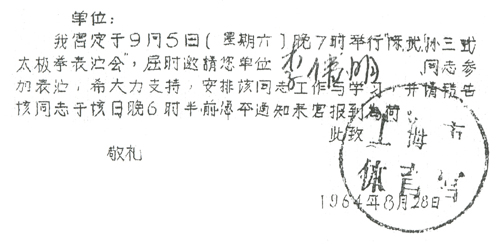 单位：
我宫定于9月5日(星期六)晚7时举行"陈式孙三式
太极拳表演会"，屈时邀请您单位 李儁明 同志参
加表演，希大力支持，安排该同志工作与学习，并请转告
该同志于该日晚6时半前凭本通知来宫报到为荷
此致
敬礼
上海市
体育宫
1964年8月28日